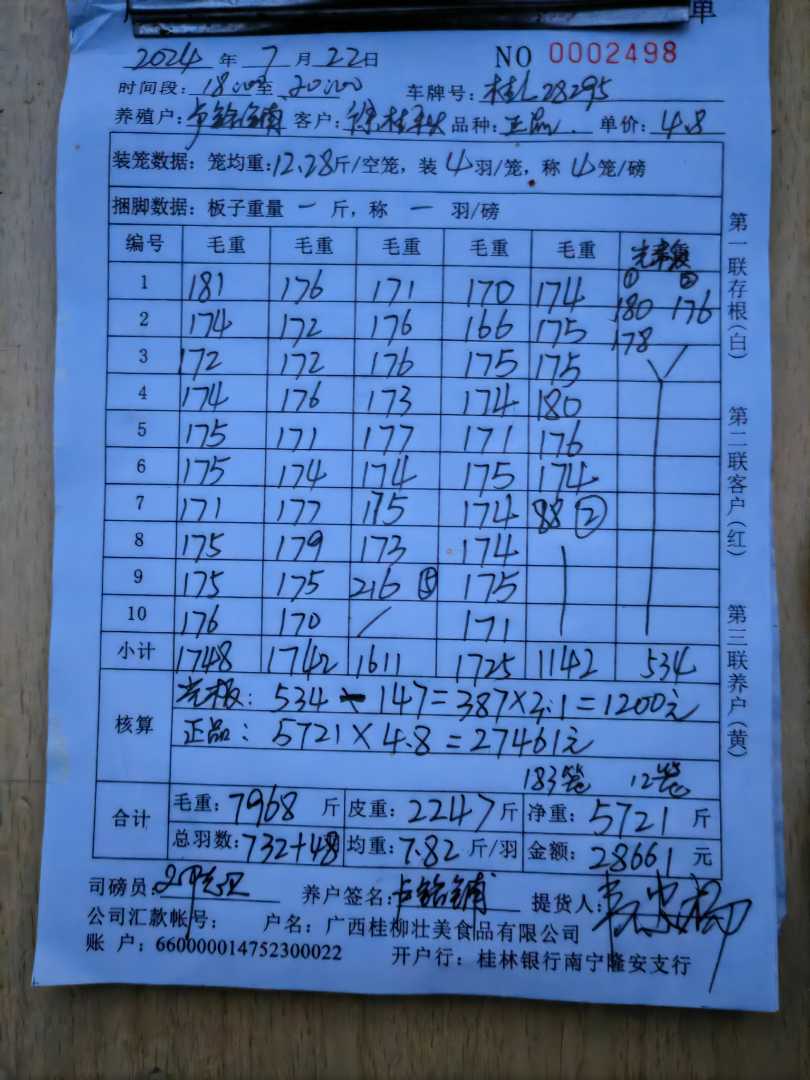 单
2024 年 7 月 22 日 NO 0002498
时间段: 18:00 至 20:00 车牌号: 桂L28295
养殖户: 客户: 品种: 正品 单价: 4.8
装笼数据: 笼均重: 12.28 斤/空笼, 装 4 羽/笼, 称 4 笼/磅
捆脚数据: 板子重量 一 斤, 称 一 羽/磅
编号 毛重 毛重 毛重 毛重 毛重
① ②
1 181 176 171 170 174 180 176
2 174 172 176 166 175 178
3 172 172 176 175 175
4 174 176 173 174 180
5 175 171 177 171 176
6 175 174 174 175 174
7 171 177 175 174 88 ②
8 175 179 173 174
9 175 175 216 ⑤ 175
10 176 170 / 171
小计 1748 1742 1611 1725 1142 534
核算 光板: 534 - 147 = 387 × 3.1 = 1200元
正品: 5721 × 4.8 = 27461元
183笼 12笼
合计 毛重: 7968 斤 皮重: 2247 斤 净重: 5721 斤
总羽数: 732+48 均重: 7.82 斤/羽 金额: 28661 元
司磅员: 养户签名: 提货人:
公司汇款帐号: 户名: 广西桂柳壮美食品有限公司
账 户: 660000014752300022 开户行: 桂林银行南宁隆安支行
第一联存根(白)
第二联客户(红)
第三联养户(黄)